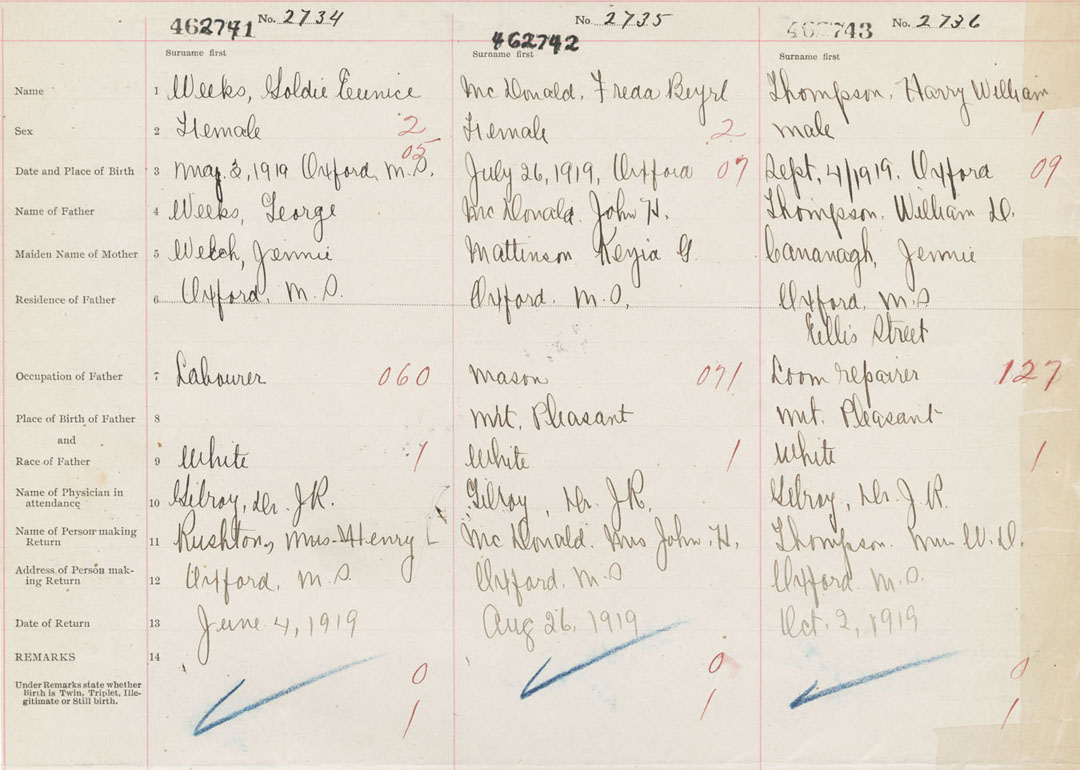 462741 No. 2734 462742 No. 2735 462743 No. 2736
Surname first Surname first Surname first
Name 1 Weeks, Goldie Eunice Mc Donald, Freda Beyrl Thompson, Harry William
Sex 2 Female 2 Female 2 male 1
05
Date and Place of Birth 3 May 3, 1919 Oxford, N.S. July 26, 1919, Oxford 07 Sept. 4/1919. Oxford 09
Name of Father 4 Weeks, George Mc Donald, John H. Thompson, William D.
Maiden Name of Mother 5 Welch, Jennie Mattinson Kezia G. Cavanagh, Jennie
Residence of Father 6 Oxford, N.S. Oxford. N.S. Oxford, N.S
Ellis Street
Occupation of Father 7 Labourer 060 Mason 071 Loom repairer 127
Place of Birth of Father 8 Mt. Pleasant Mt. Pleasant
and
Race of Father 9 White 1 White 1 White 1
Name of Physician in
attendance 10 Gilroy, Dr. J.R. Gilroy, Dr. J.R. Gilroy, Dr. J.R.
Name of Person making
Return 11 Rushton, Mrs Henry Mc Donald. Mrs John. H. Thompson. Mrs W. D.
Address of Person mak-
ing Return 12 Oxford, N.S Oxford. N.S Oxford. N.S.
Date of Return 13 June 4, 1919 Aug 26, 1919 Oct. 2, 1919
REMARKS 14
Under Remarks state whether 0 0 0
Birth is Twin, Triplet, Ille-
gitimate or Still birth. 1 1 1